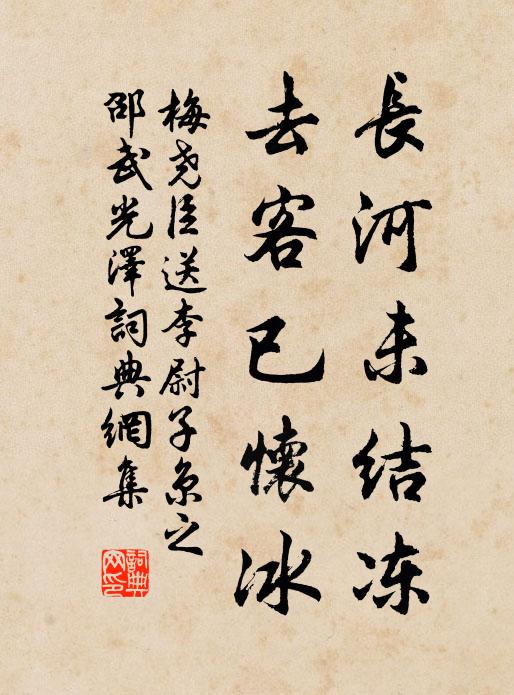 長河未结冻
去客已懷冰
梅尧臣送李尉子京之
邵武光澤詞典網集
詞典网印